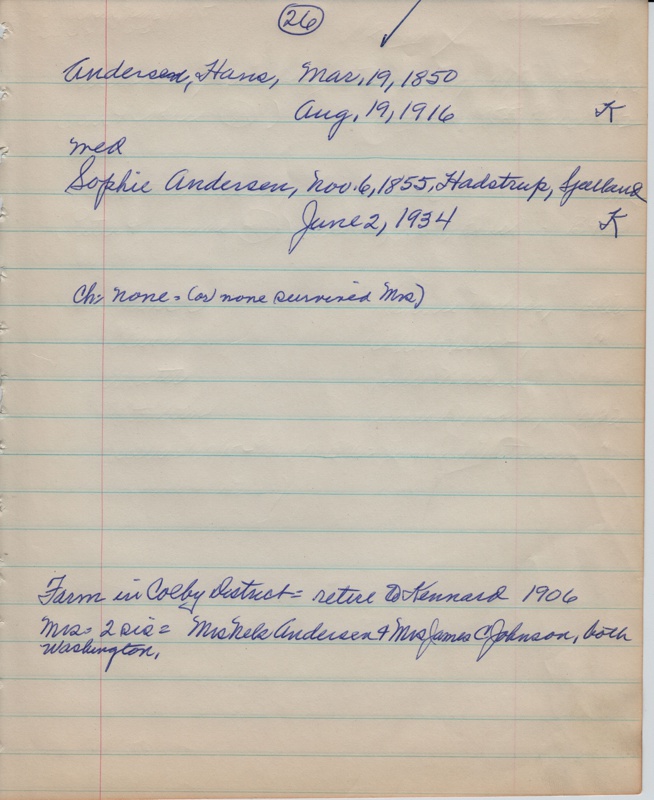 26
Andersen, Hans, Mar, 19, 1850
Aug, 19, 1916 K
med
Sophie Andersen, Nov. 6, 1855, Hadstrup, Sjelland
June 2, 1934 K
Ch: none = (or none survived Mrs)
Farm in Colby District = retire to Kennard 1906
Mrs = 2 sis = Mrs Nels Andersen & Mrs James C Johnson, both
Washington,